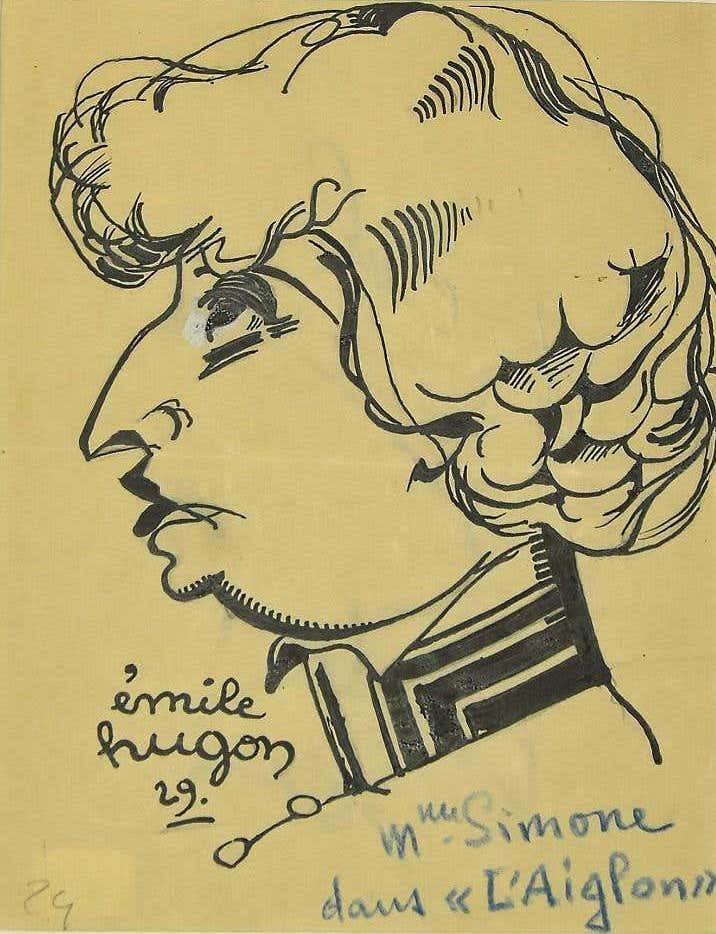 émile
hugon
29.
Mme. Simone
dans « L'Aiglon»